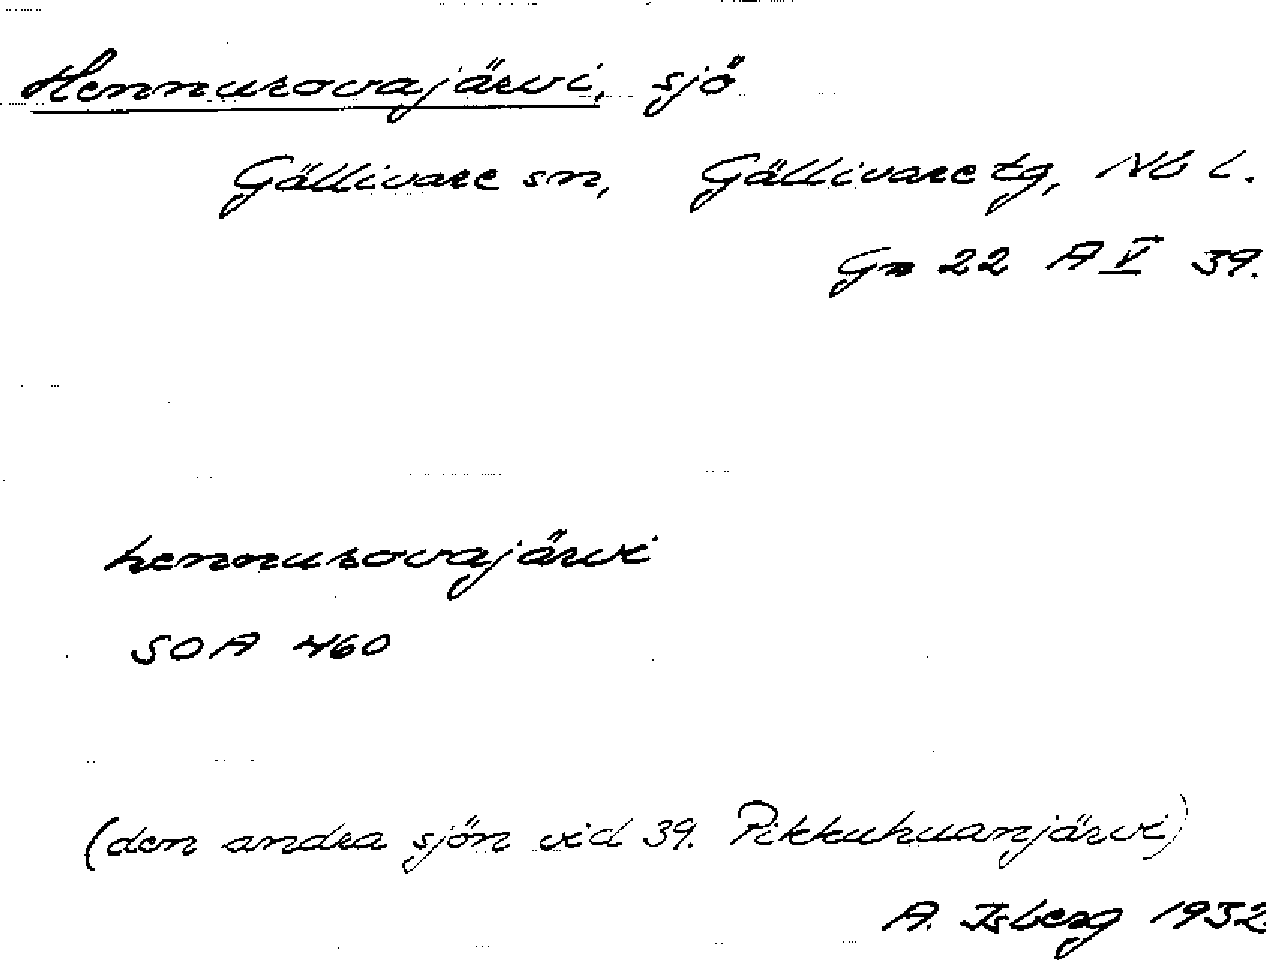 Hennurovajärvi, sjö
Gällivare sn, Gällivare tg, Nb l.
Gn 22 A V 39.
hennurovajärvi
SOA 460
(den andra sjön vid 39. Pikkuhuanjärvi)
A. Isberg 1932